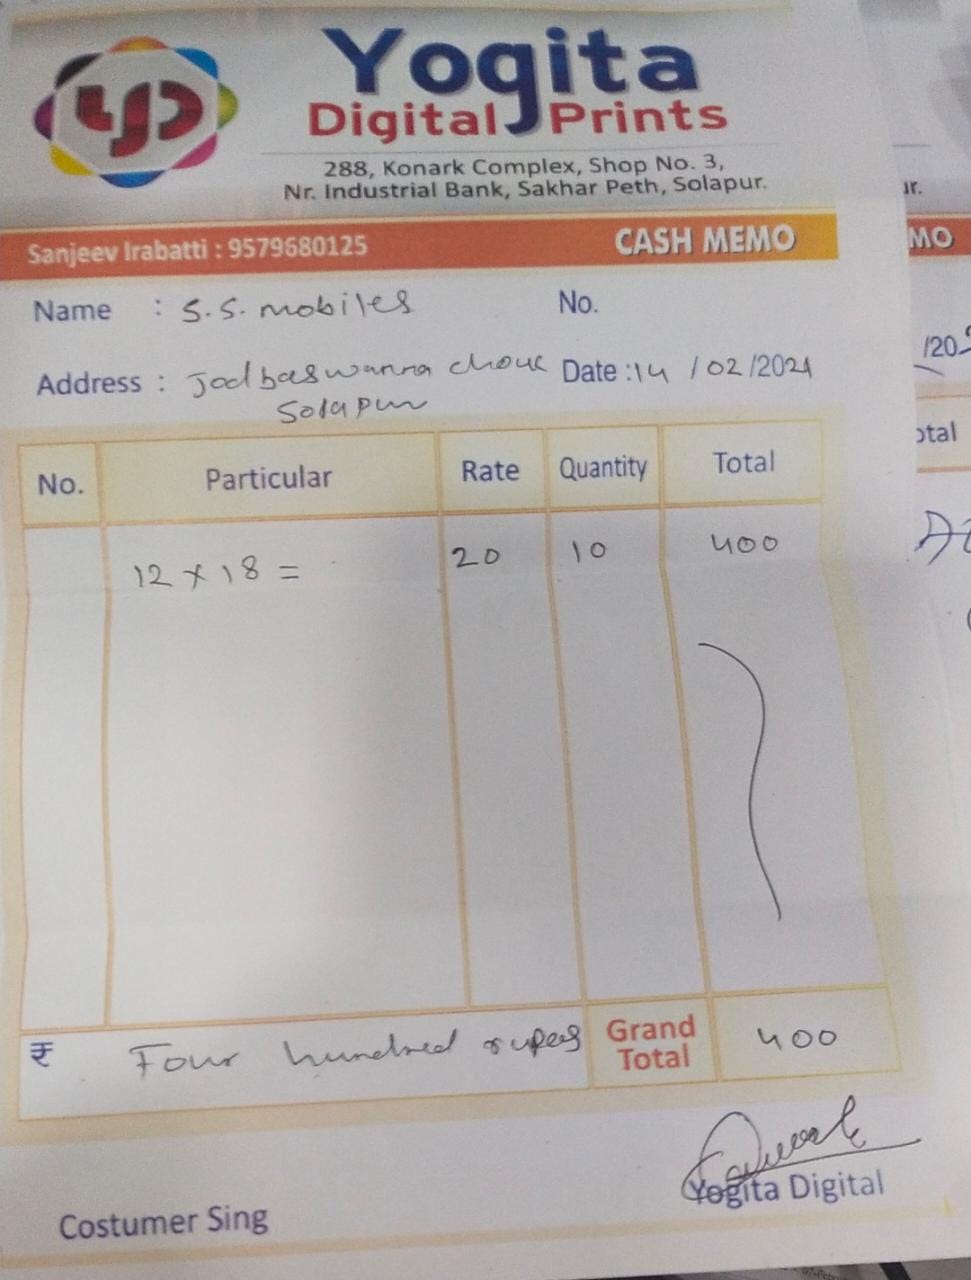 Yogita
Digital Prints
288, Konark Complex, Shop No. 3,
Nr. Industrial Bank, Sakhar Peth, Solapur.
ur.
Sanjeev Irabatti : 9579680125 CASH MEMO
MO
Name : S.S. mobiles No.
Address : Jodbaswanna chouk Date :14 /02/2021
/202
Solapur
No. Particular Rate Quantity Total
otal
12 x 18 = 20 10 400
₹ Four hundred rupees Grand Total 400
Yogita Digital
Costumer Sing